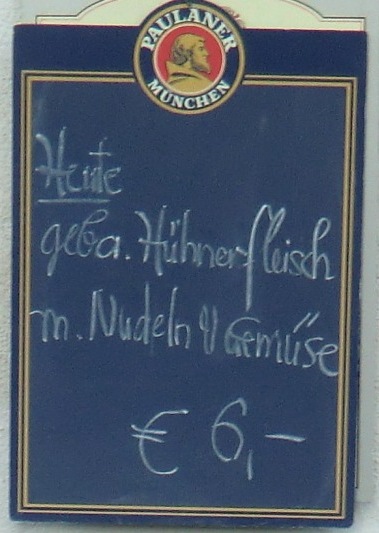 PAULANER
MÜNCHEN
Heute
geba. Hühnerfleisch
m. Nudeln U Gemüse
€ 6,-